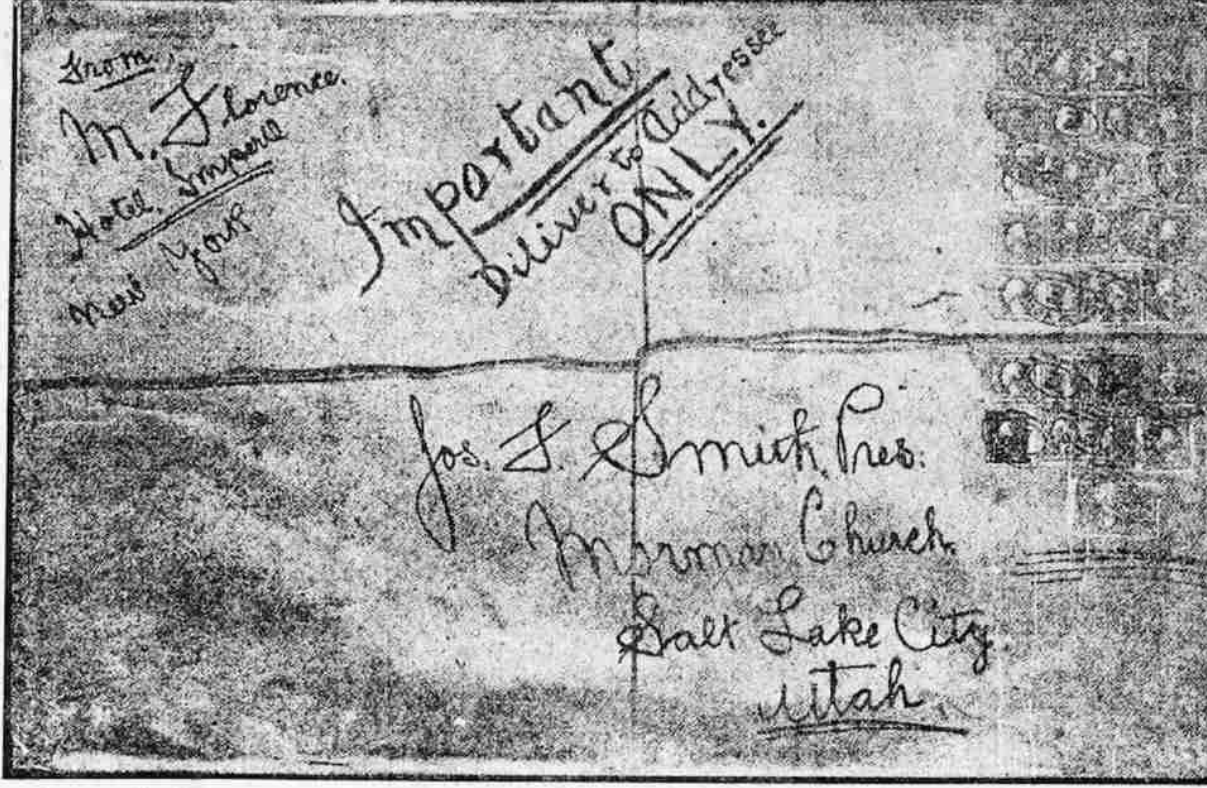 From
M. Florence.
Hotel. Imperil
New York
Important
Diliver to Addressee
ONLY.
Jos. F. Smith, Pres.
Mormon Church.
Salt Lake City.
Utah.